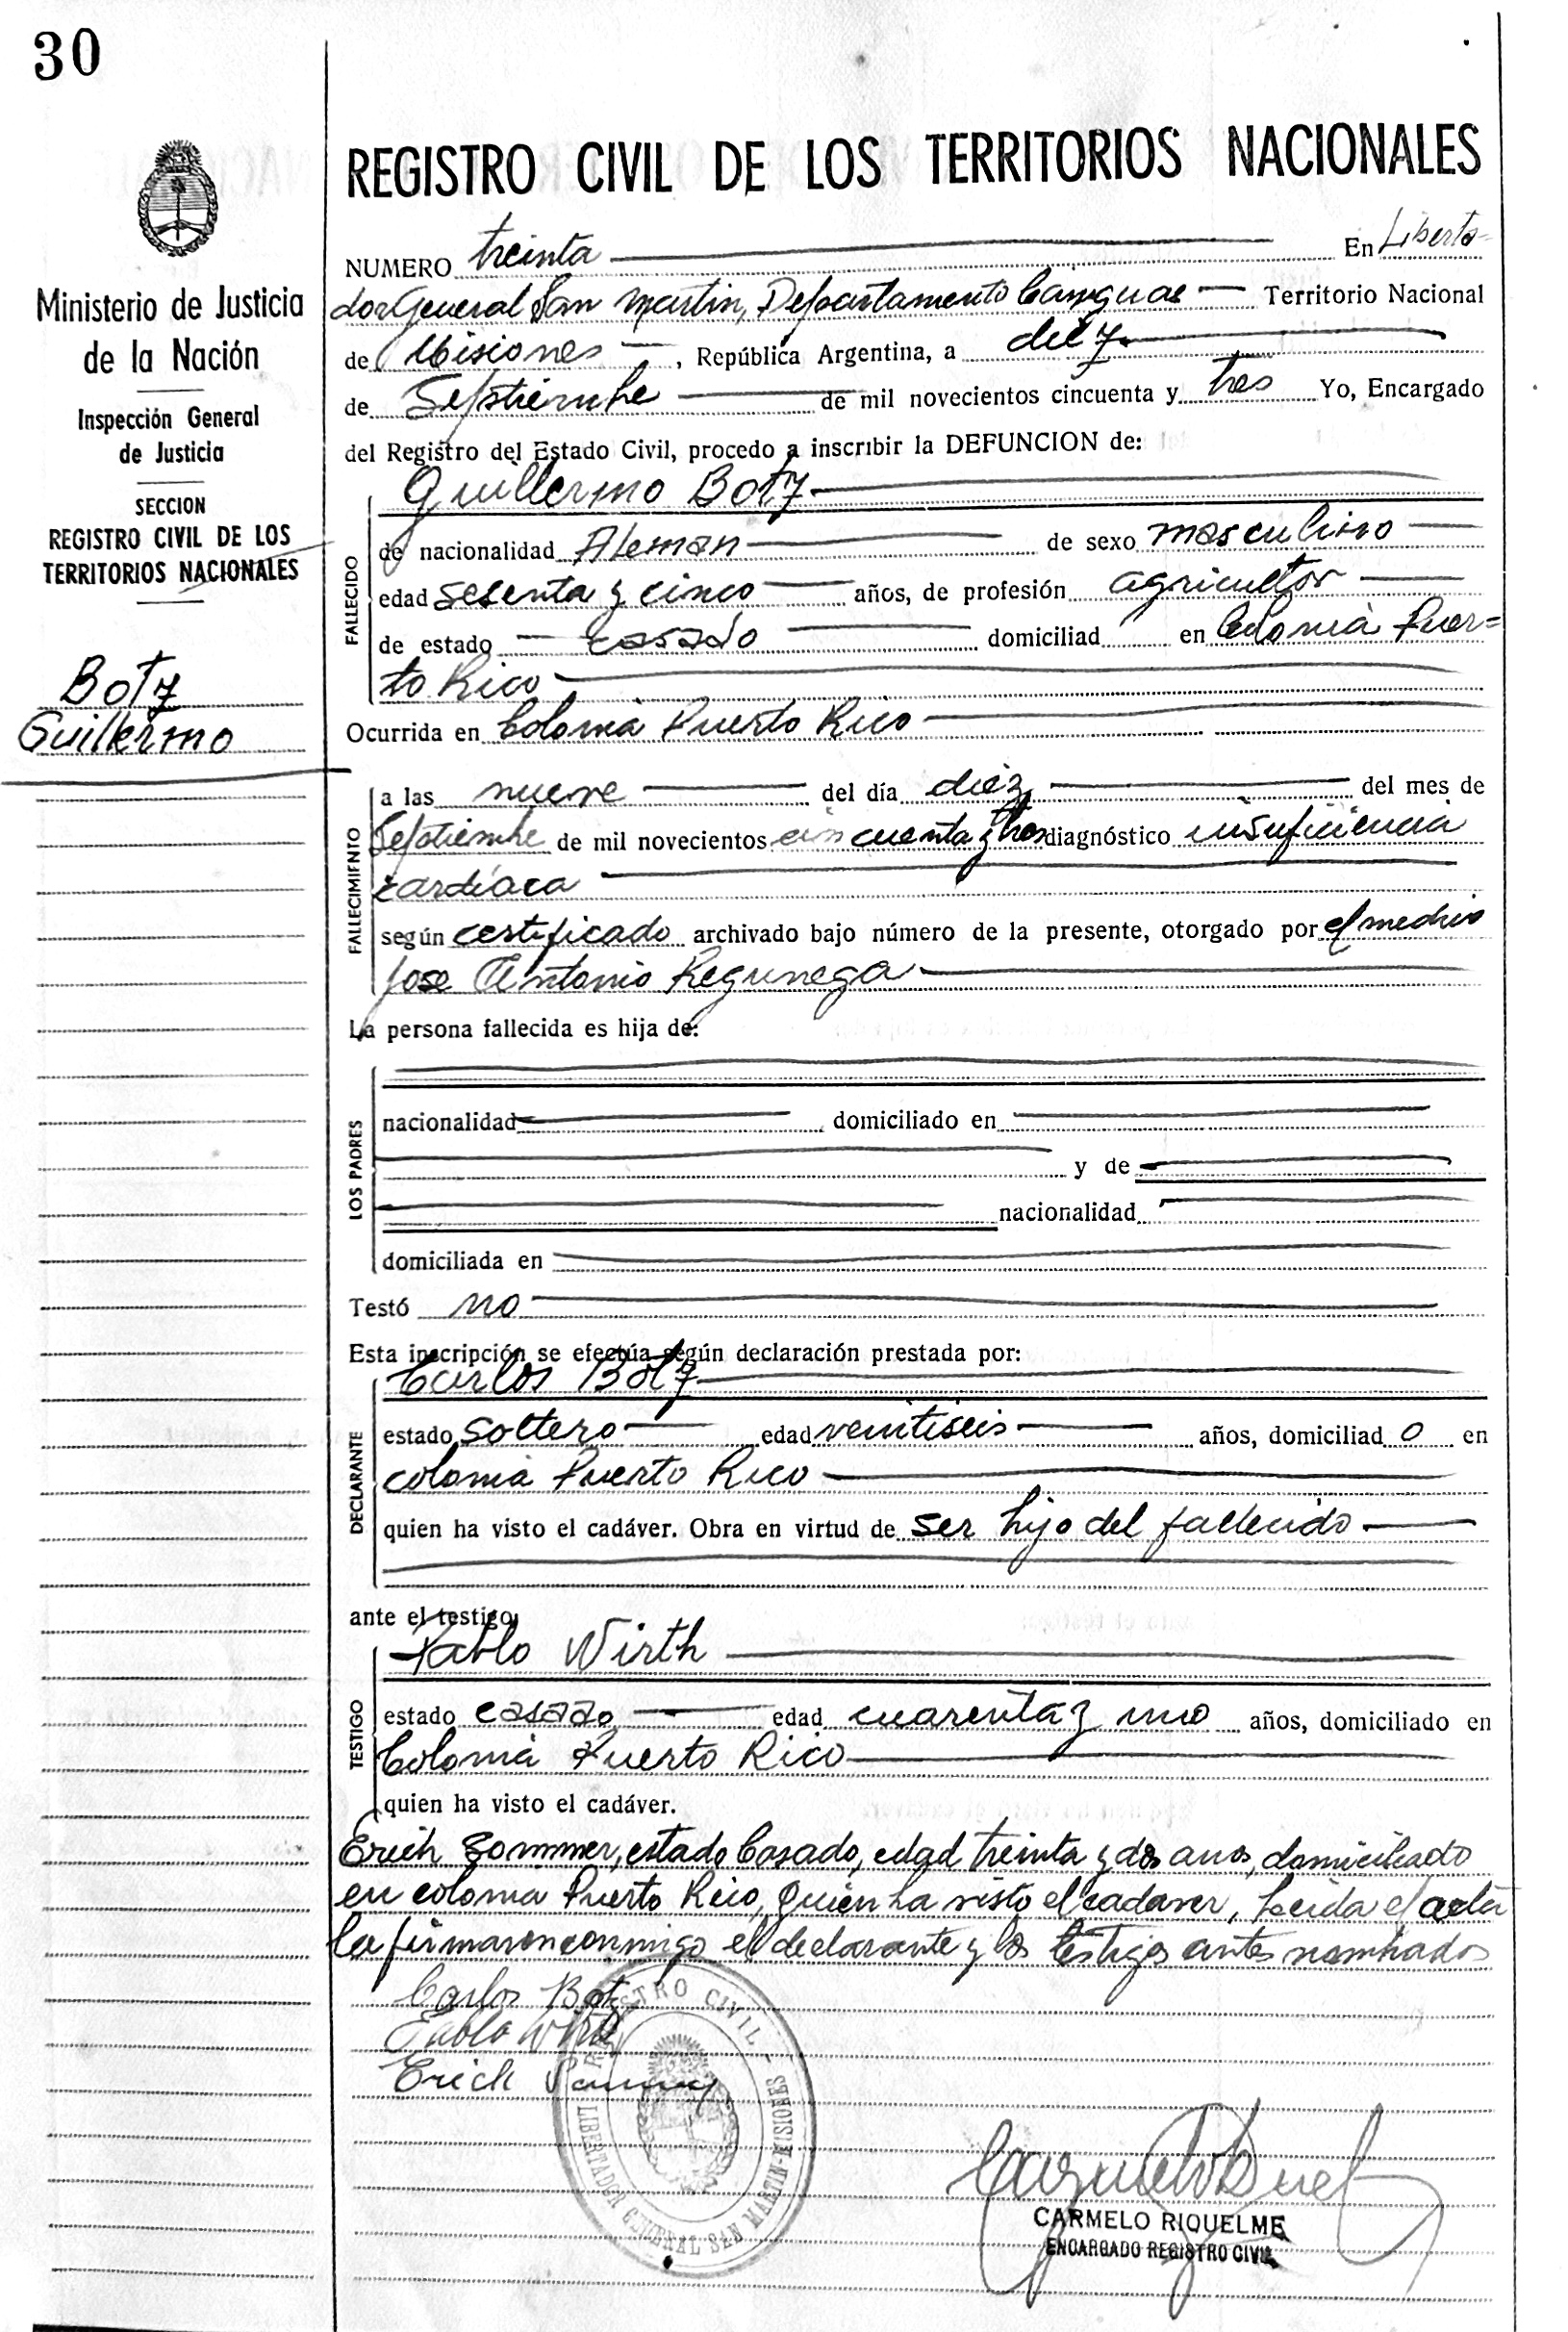 30
Ministerio de Justicia
de la Nación
Inspección General
de Justicia
SECCION
REGISTRO CIVIL DE LOS
TERRITORIOS NACIONALES
Botz
Guillermo
REGISTRO CIVIL DE LOS TERRITORIOS NACIONALES
NUMERO treinta En Liberta-
dor General San Martin, Departamento Cainguas Territorio Nacional
de Misiones, República Argentina, a diez
de Septiembre de mil novecientos cincuenta y tres Yo, Encargado
del Registro del Estado Civil, procedo a inscribir la DEFUNCION de:
Guillermo Botz
FALLECIDO
de nacionalidad Aleman de sexo masculino
edad sesenta y cinco años, de profesión agricultor
de estado casado domiciliad en Colonia Puer=
to Rico
Ocurrida en Colonia Puerto Rico
FALLECIMIENTO
a las nueve del día diez del mes de
Septiembre de mil novecientos cincuenta y tres diagnóstico insuficiencia
cardíaca
según certificado archivado bajo número de la presente, otorgado por el medico
Jose Antonio Regunega
La persona fallecida es hija de:
LOS PADRES
nacionalidad domiciliado en
y de
nacionalidad
domiciliada en
Testó no
Esta inscripción se efectúa según declaración prestada por:
Carlos Botz
DECLARANTE
estado soltero edad veintiseis años, domiciliad o en
colonia Puerto Rico
quien ha visto el cadáver. Obra en virtud de ser hijo del fallecido
ante el testigo
Pablo Wirth
TESTIGO
estado casado edad cuarenta y uno años, domiciliado en
Colonia Puerto Rico
quien ha visto el cadáver.
Erich Sommer, estado Casado, edad treinta y dos anos, domiciliado
en colonia Puerto Rico, quien ha visto el cadaver, Leida el acta
la firmaron conmigo el declarante y los testigos antes nombrados
Carlos Botz
Pablo Wirth
Erich Sommer
REGISTRO CIVIL - MISIONES
LIBERTADOR GENERAL SAN MARTIN
CARMELO RIQUELME
ENCARGADO REGISTRO CIVIL